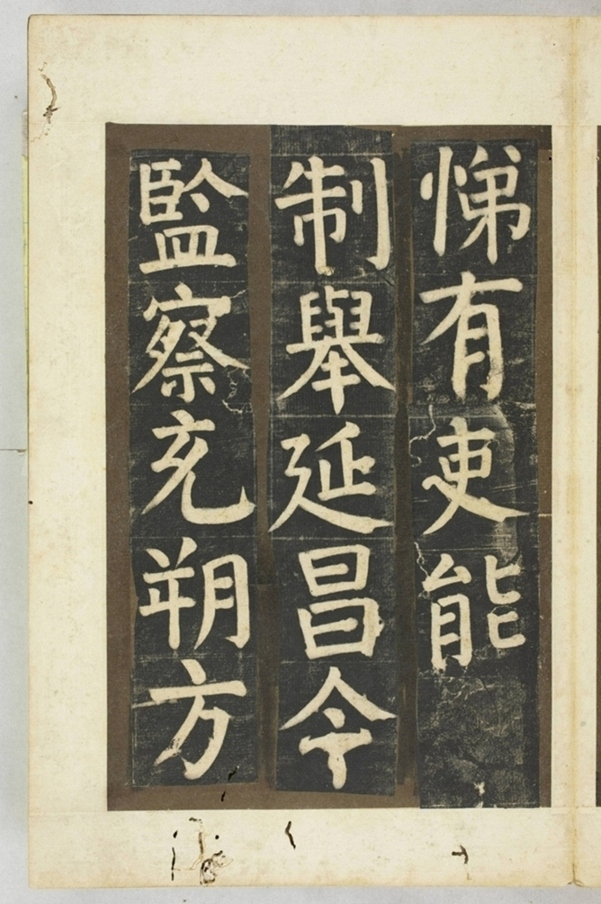 悌有吏能
制舉延昌令
監察充朔方